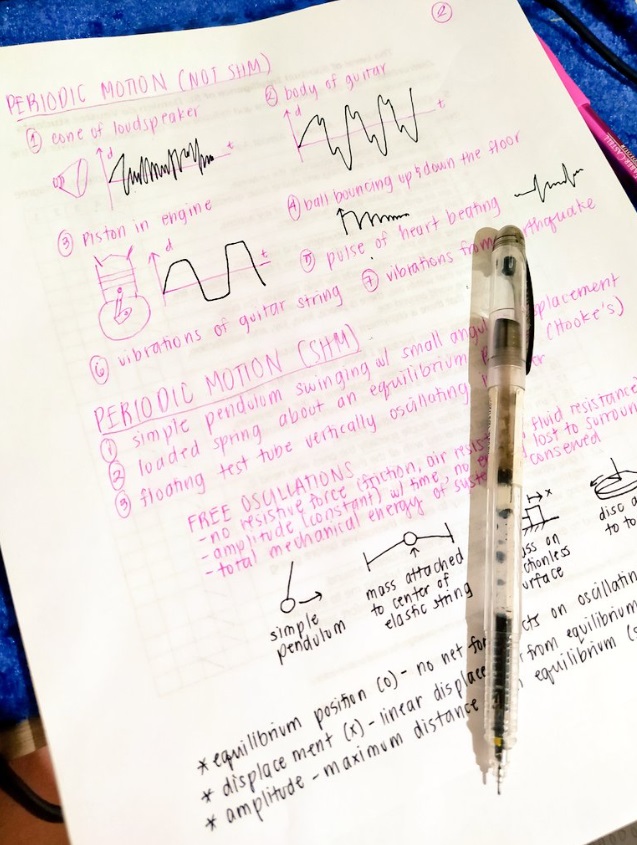 2
PERIODIC MOTION (NOT SHM)
① cone of loudspeaker
d
t
② body of guitar
d
t
③ piston in engine
d
t
④ ball bouncing up & down the floor
⑤ pulse of heart beating
⑥ vibrations of guitar string
⑦ vibrations from
PERIODIC MOTION (SHM)
① simple pendulum swinging w/ small
② loaded spring about an equilibrium (Hooke's)
③ floating test tube vertically oscillating
FREE OSCILLATIONS
- no resistive force (friction, air fluid resistance)
- amplitude (constant) w/ time, no lost to
- total mechanical energy of conserved
simple
pendulum
mass attached
to center of
elastic string
x
on
disc
to
* equilibrium position (0) - no net on
* displacement (x) - linear from
* amplitude - maximum distance equilibrium